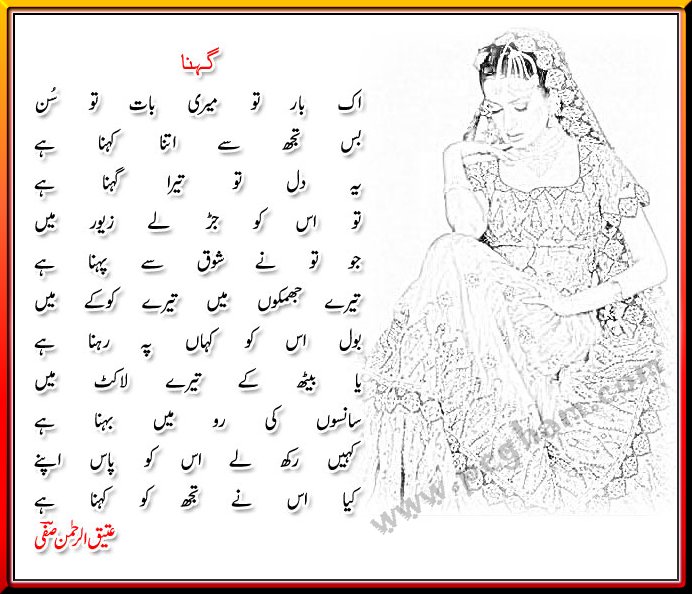 گہنا
اک بار تو میری بات تو سُن
بس تجھ سے اتنا کہنا ہے
یہ دل تو تیرا گہنا ہے
تو اس کو جڑ لے زیور میں
جو تو نے شوق سے پہنا ہے
تیرے جھمکوں میں تیرے کوکے میں
بول اس کو کہاں پہ رہنا ہے
یا بیٹھ کے تیرے لاکٹ میں
سانسوں کی رو میں بہنا ہے
کہیں رکھ لے اس کو پاس اپنے
کیا اس نے تجھ کو کہنا ہے
عتیق الرحمٰن صفیؔ
www.pegham.com